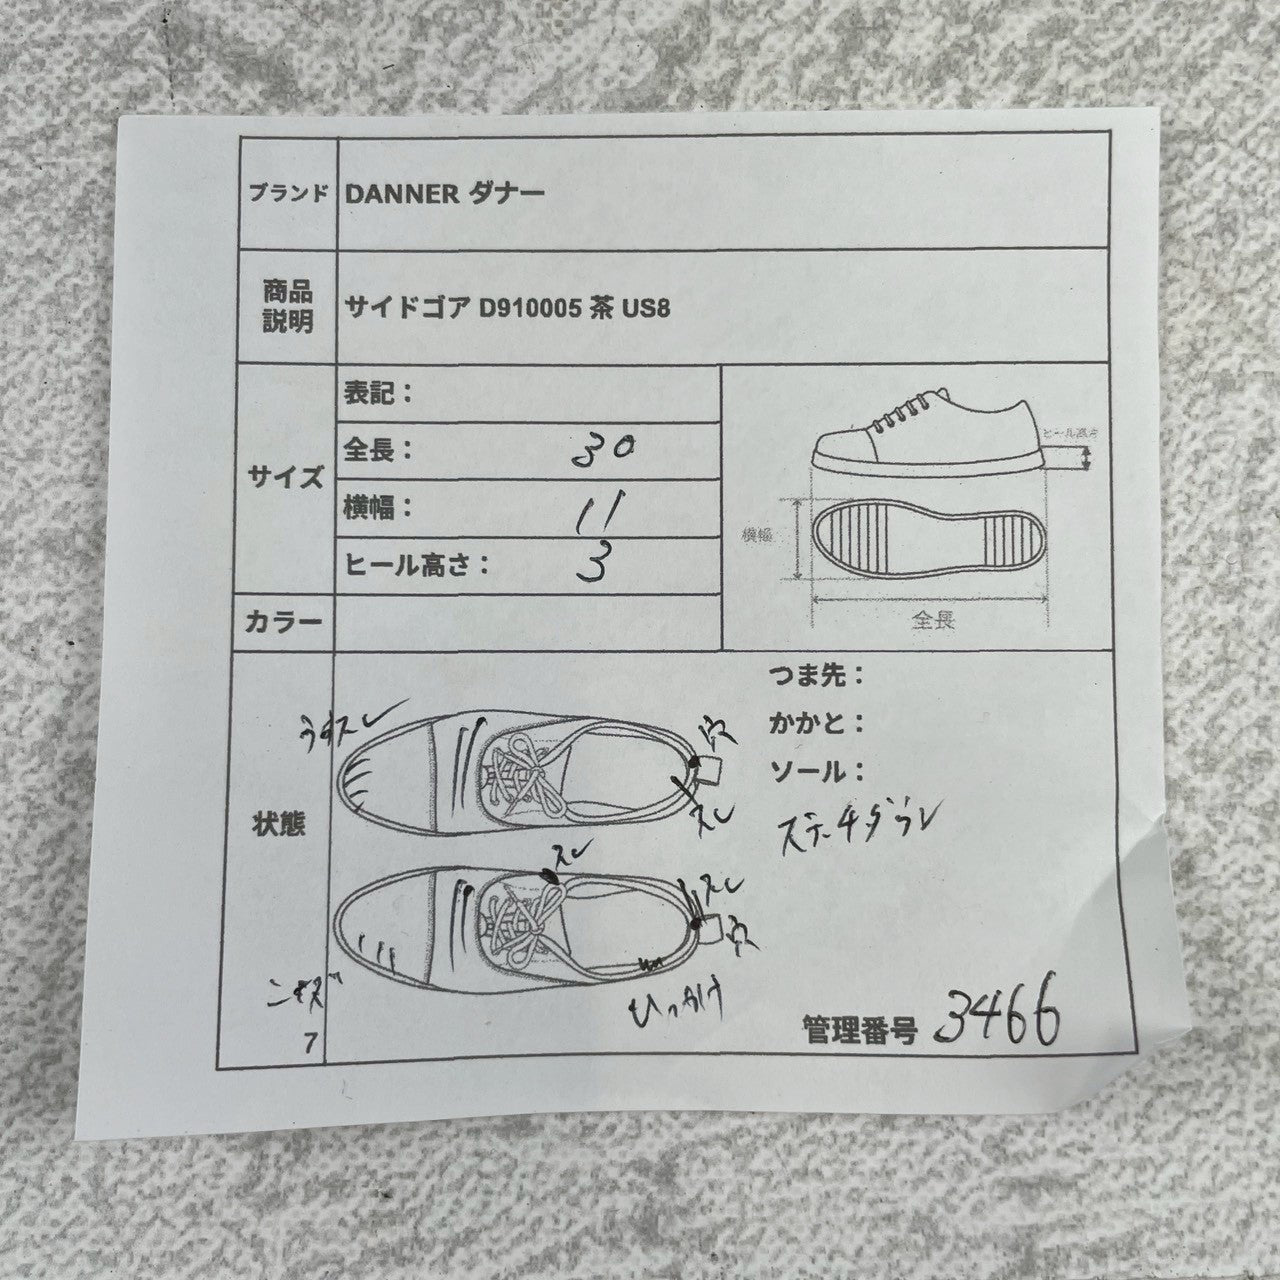 ブランド DANNER ダナー
商品
説明
サイドゴア D910005 茶 US8
サイズ
表記：
全長： 30
横幅： 11
ヒール高さ： 3
ヒール高さ
横幅
全長
カラー
状態
つま先：
かかと：
ソール：
うすスレ
穴
スレ
スレ
スレ
穴
ひっかけ
キズ
7
管理番号 3466